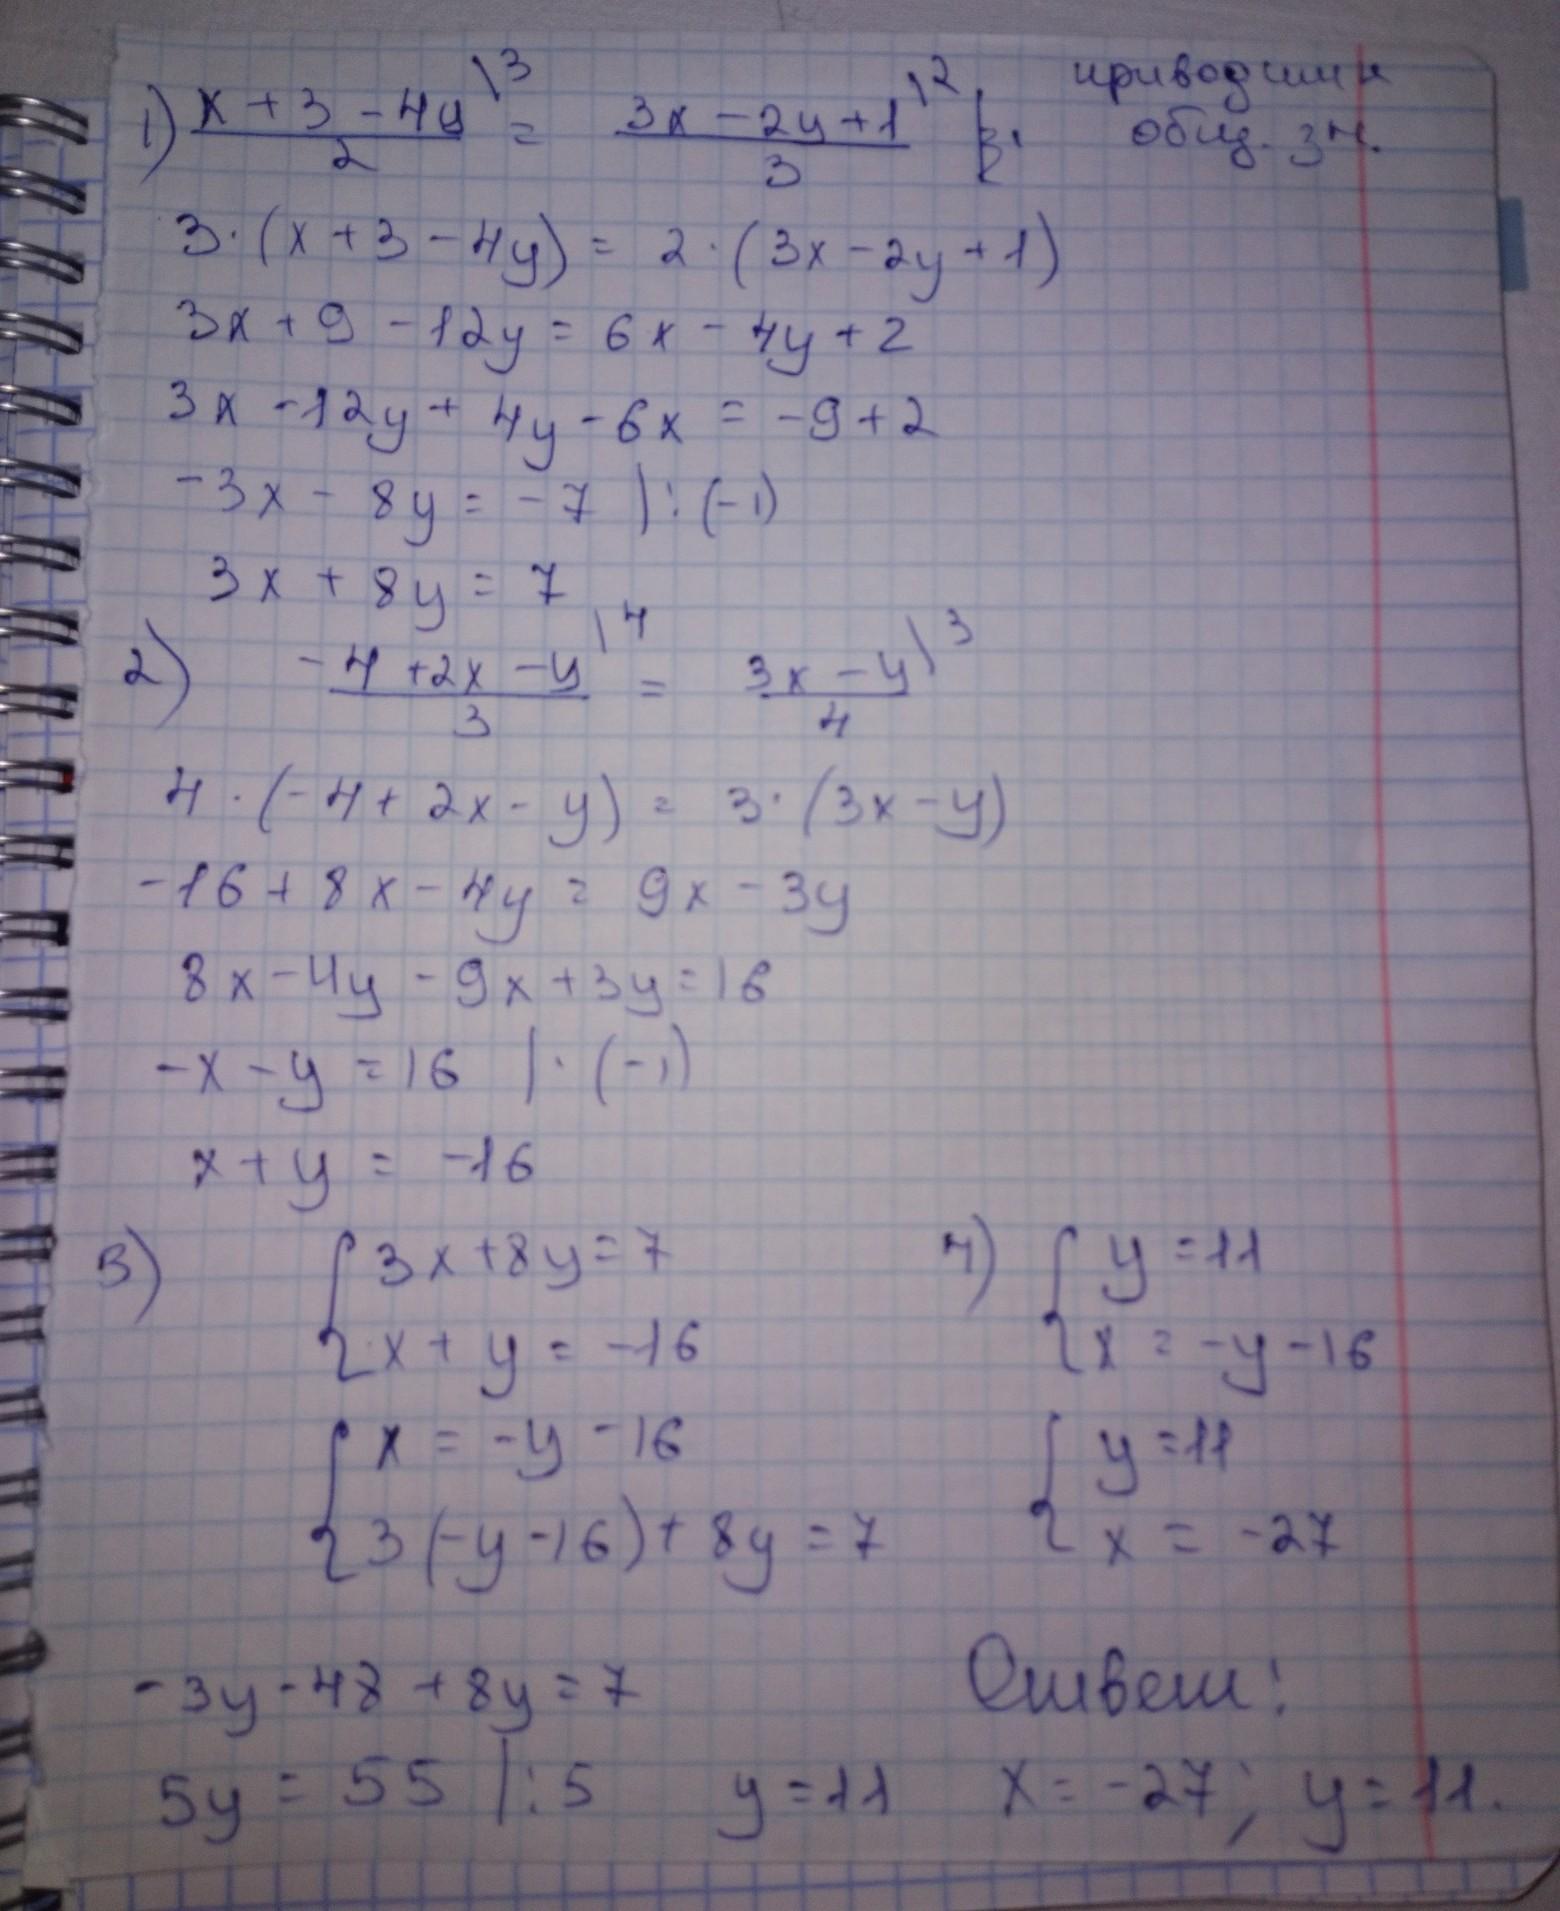 1) (x + 3 - 4y)/2 \3 = (3x - 2y + 1)/3 \2 | приводим к
общ. зн.
3·(x + 3 - 4y) = 2·(3x - 2y + 1)
3x + 9 - 12y = 6x - 4y + 2
3x - 12y + 4y - 6x = -9 + 2
-3x - 8y = -7 |:(-1)
3x + 8y = 7
2) (-4 + 2x - y)/3 \4 = (3x - y)/4 \3
4·(-4 + 2x - y) = 3·(3x - y)
-16 + 8x - 4y = 9x - 3y
8x - 4y - 9x + 3y = 16
-x - y = 16 |·(-1)
x + y = -16
3) { 3x + 8y = 7
x + y = -16
{ x = -y - 16
3(-y - 16) + 8y = 7
-3y - 48 + 8y = 7
5y = 55 |:5 y = 11
4) { y = 11
x = -y - 16
{ y = 11
x = -27
Ответ:
x = -27; y = 11.